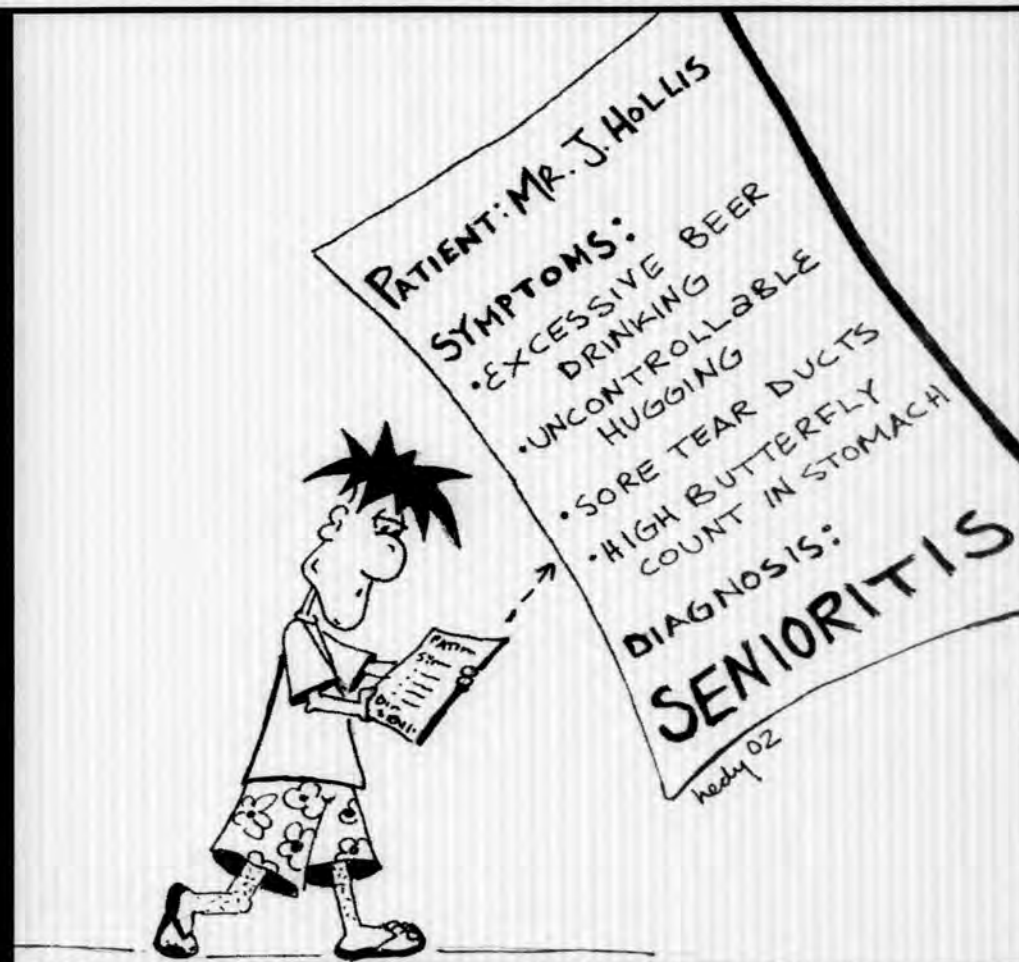 PATIENT: MR. J. HOLLIS
SYMPTOMS:
• EXCESSIVE BEER
DRINKING
• UNCONTROLLABLE
HUGGING
• SORE TEAR DUCTS
• HIGH BUTTERFLY
COUNT IN STOMACH
DIAGNOSIS:
SENIORITIS
hedy 02